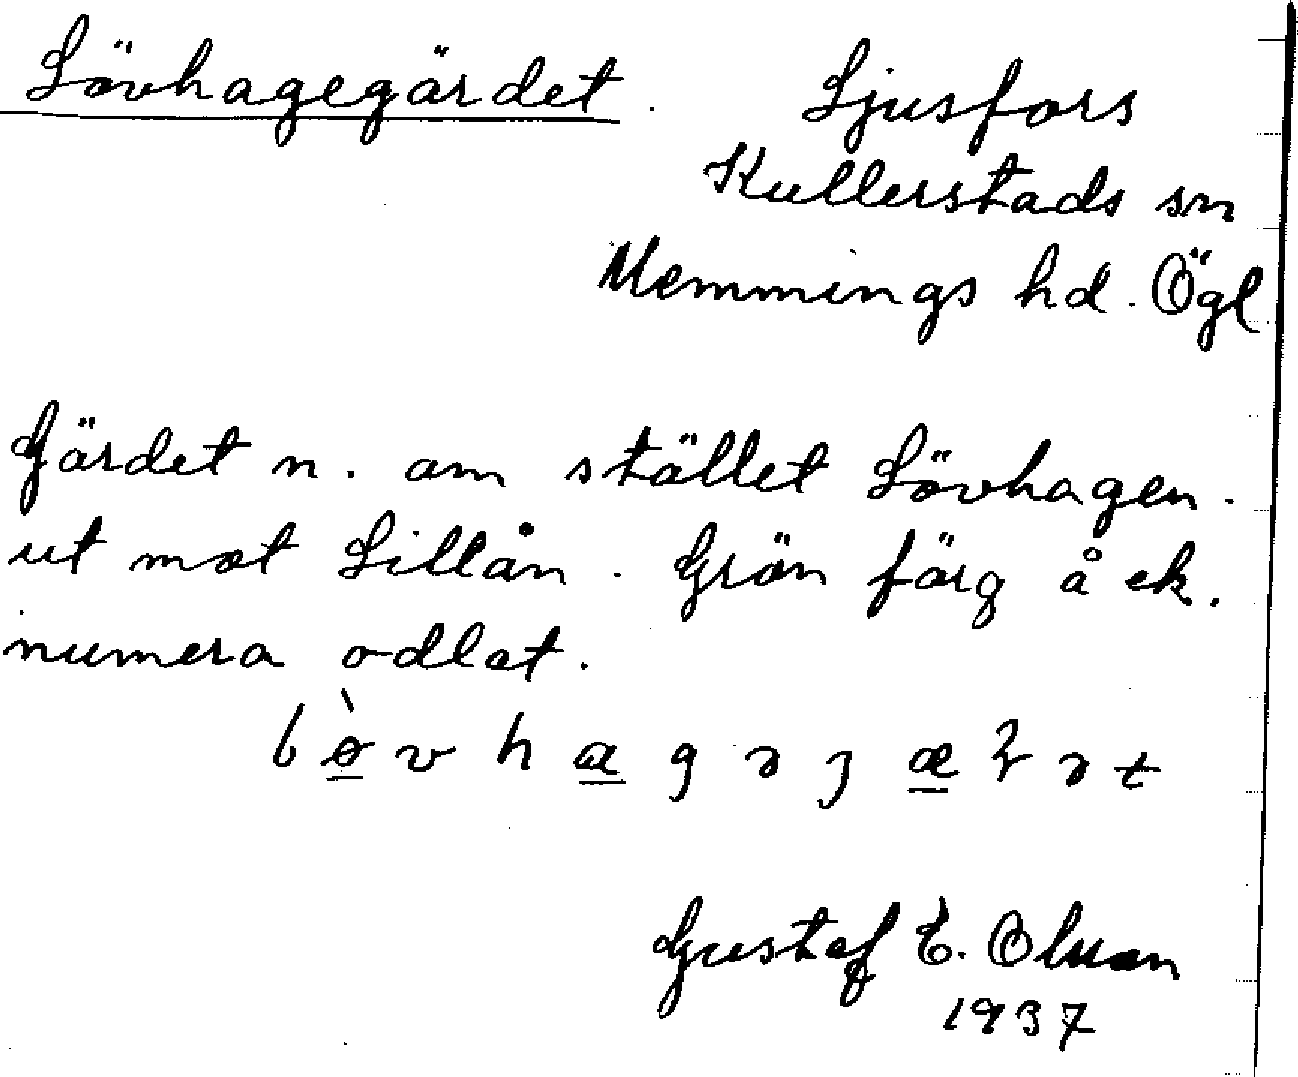 Lövhagegärdet. Ljusfors
Kullerstads sn
Memmings hd. Ögl
Gärdet n. om stället Lövhagen.
ut mot Lillån. Grön färg å ek.
numera odlat.
Gustaf E. Olson
1937